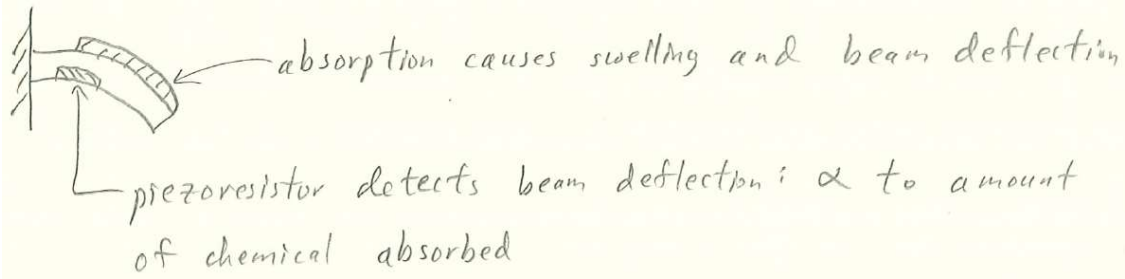 absorption causes swelling and beam deflection
piezoresistor detects beam deflection; α to amount
of chemical absorbed